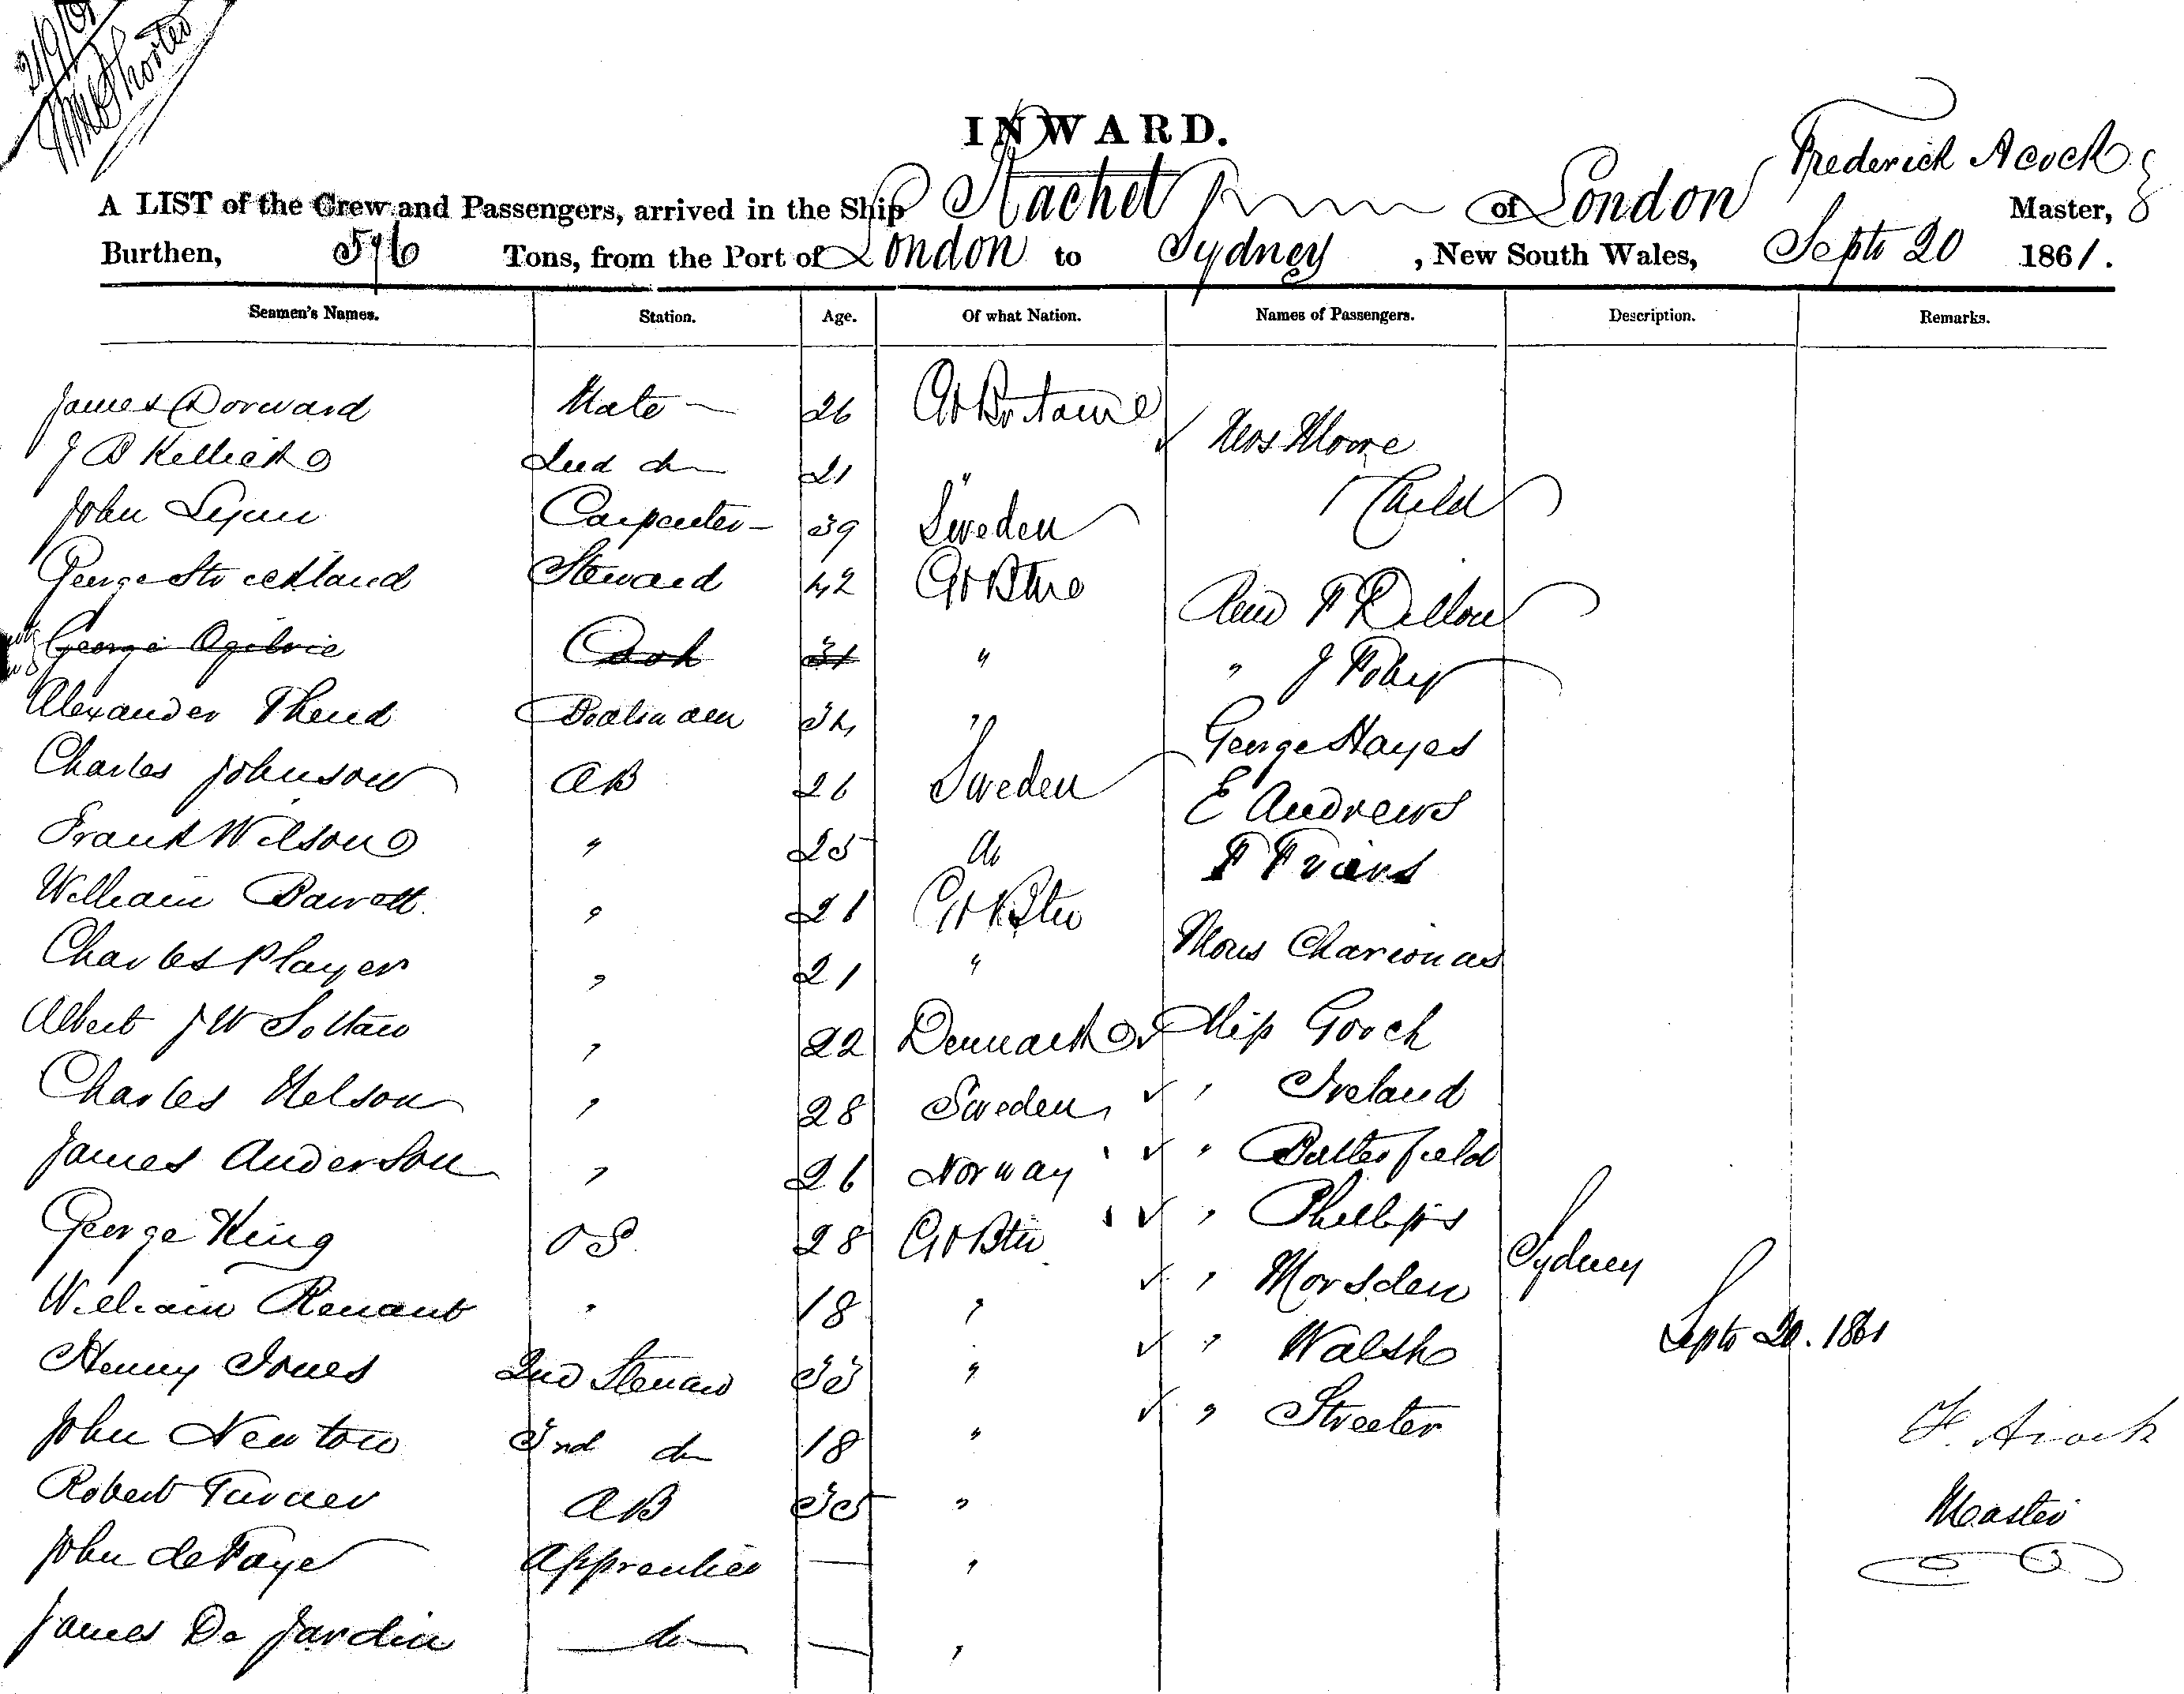 21/9/61
INWARD.
Frederick Acock
A LIST of the Crew and Passengers, arrived in the Ship Rachel of London Master,
Burthen, 576 Tons, from the Port of London to Sydney , New South Wales, Septr 20 1861.
Seamen's Names. Station. Age. Of what Nation. Names of Passengers. Description. Remarks.
James Dorward Mate 26 Gt Britaine
Mrs Moore
J B Killick 2nd do 21 "
Child
John Lynn Carpenter 39 Sweden
George Strickland Steward 42 Gt Btn
Revd P Dillon
George Ogilvie Cook 31 "
" J Foley
Alexander Boatsman 34 "
George Hayes
Charles Johnson AB 26 Sweden
E Andrews
Frank Wilson " 25 do
F Evans
William Barrett " 21 Gt Btn
Charles Player " 21 "
Mons
Albert J W Soltau " 22 Denmark
Miss Gooch
Charles Nelson " 28 Sweden
" Ireland
James Anderson " 26 Norway
" Butterfield
George King OS 28 Gt Btn
" Phillips
Sydney
" Morsden
William " 18 "
Septr 20. 1861
" Walsh
Henry Jones 2nd Steward 33 "
" Streeter
John Newton 3rd do 18 "
F. Acock
Robert Turner AB 35 "
Master
John de Faye Apprentice — "
James De Jardin do — "